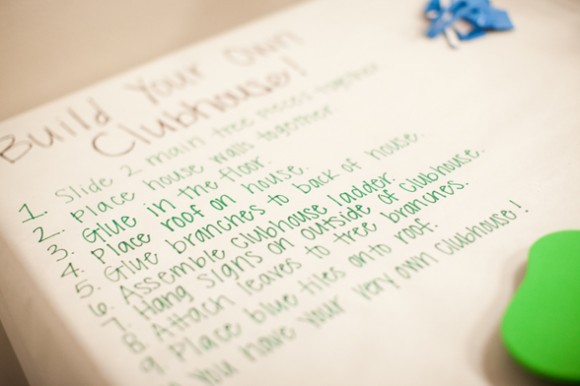 Build Your Own
Clubhouse!
1. Slide 2 main tree pieces together
2. Place house walls together
3. Glue in the floor.
4. Place roof on house.
5. Glue branches to back of house.
6. Assemble Clubhouse ladder.
7. Hang signs on outside of clubhouse.
8 Attach leaves to tree branches.
9 Place blue tiles onto roof.
You have your very own Clubhouse!